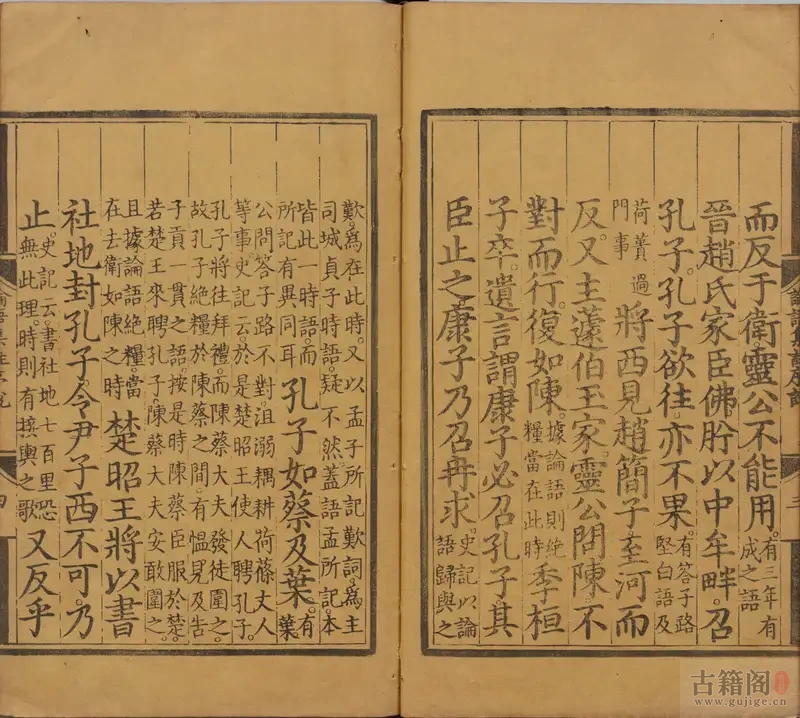 而反于衛。靈公不能用。有三年有成之語
晉趙氏家臣佛肸以中牟畔。召
孔子。孔子欲往。亦不果。有答子路堅白語及
荷蕢過門事將西見趙簡子。至河而
反。又主蘧伯玉家。靈公問陳。不
對而行。復如陳。據論語則絕糧當在此時季桓
子卒。遺言謂康子必召孔子。其
臣止之。康子乃召冉求。史記以論語歸與之
歎。爲在此時。又以孟子所記歎詞。爲主司城貞子時語。疑不然。蓋語孟所記。本
皆此一時語。而所記有異同耳孔子如蔡及葉。有葉
公問答子路不對。沮溺耦耕荷蓧丈人等事。史記云。於是楚昭王使人聘孔子。
孔子將往拜禮。而陳蔡大夫發徒圍之。故孔子絕糧於陳蔡之間。有慍見及告
子貢一貫之語。按是時陳蔡臣服於楚。若楚王來聘孔子。陳蔡大夫安敢圍之。
且據論語。絕糧當在去衛如陳之時楚昭王將以書
社地封孔子。令尹子西不可。乃
止。史記云。書社地七百里。恐無此理。時則有接輿之歌又反乎
古籍阁
www.gujige.cn